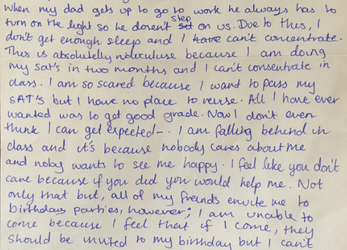 When my dad gets up to go to work he always has to
turn on the light so he doesn't step on us. Due to this, I
don't get enough sleep and I can't concentrate.
This is absolutelly rediculuse because I am doing
my sat's in two months and I can't consentrate in
class. I am so scared because I want to pass my
SAT's but I have no place to revise. All I have ever
wanted was to get good grade. Now I don't even
think I can get expected-. I am falling behind in
class and it's because nobody cares about me
and nobdy wants to see me happy. I feel like you don't
care because if you did you would help me. Not
only that but, all of my freinds envite me to
birthday parties, however; I am unable to
come because I feel that if I come, they
should be invited to my birthday but I can't